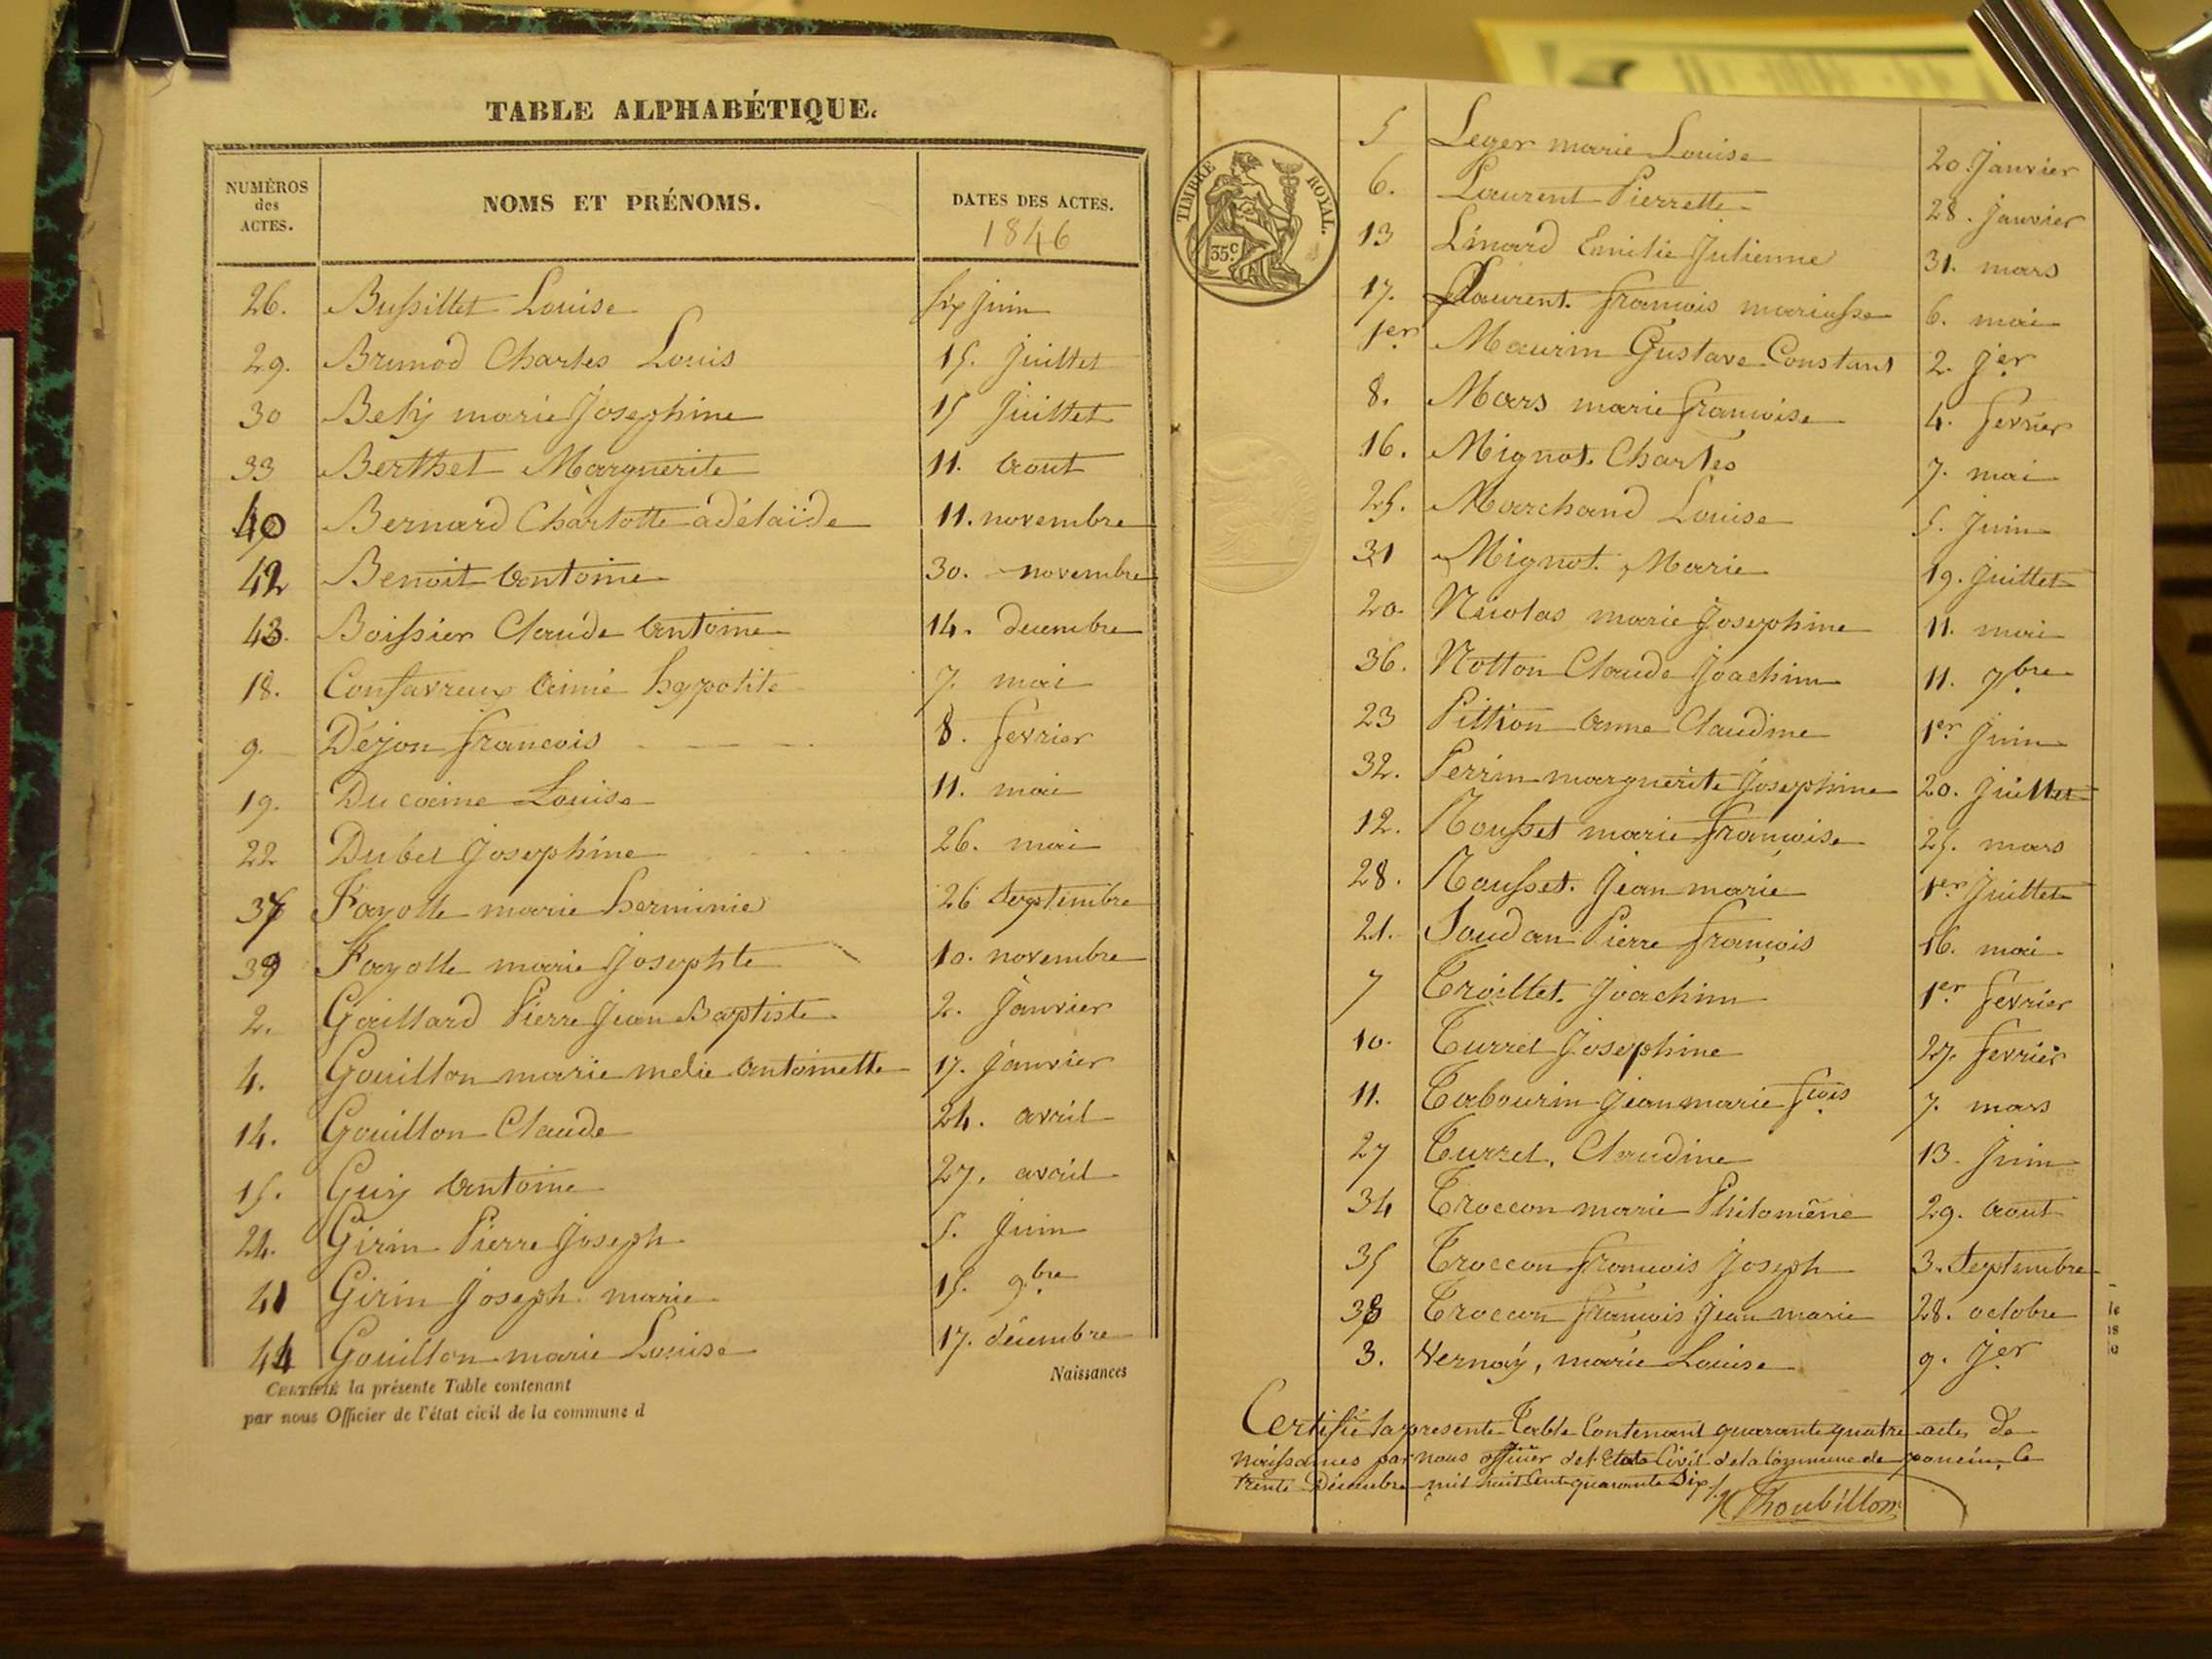 TABLE ALPHABÉTIQUE.
NUMÉROS des ACTES. NOMS ET PRÉNOMS. DATES DES ACTES.
1846
26. Bussillet Louise six juin
29. Brunod Charles Louis 15. Juillet
30 Bety marie Josephine 15 Juillet
33 Berthet Marguerite 11. aout
40 Bernard Charlotte adélaïde 11. novembre
42 Benoit antoine 30. novembre
43. Boissier Claude antoine 14. decembre
18. Confavreux aimé hypolite 7. mai
9. Déjon francois 8. fevrier
19. Ducaine Louise 11. mai
22 Dubet Josephine 26. mai
37 Fayolle marie herminie 26 Septembre
39 Fayolle marie Josephte 10. novembre
2. Gaillard Pierre Jean Baptiste 2. Janvier
4. Gouillon marie melie antoinette 17. Janvier
14. Gouillon Claude 24. avril
15. Guy antoine 27. avril
24. Girin Pierre Joseph 5. Juin
41 Girin Joseph marie 15. 9.bre
44 Gouillon marie Louise 17. décembre
CERTIFIÉ la présente Table contenant Naissances
par nous Officier de l'état civil de la commune d
TIMBRE ROYAL.
35c
5 Leger marie Louise 20. Janvier
6. Laurent Pierrette 28. Janvier
13 Linard Emilie Julienne 31. mars
17. Laurent francois mariusse 6. mai
1er Maurin Gustave Constant 2. Jer
8. Mars marie francoise 4. fevrier
16. Mignot Charles 7. mai
25. Marchand Louise 5. Juin
31 Mignot. Marie 19. Juillet
20. Nicolas marie Josephine 11. mai
36. Notton Claude Joachim 11. 7bre
23 Pittion anne Claudine 1er Juin
32. Perrin marguerite Josephine 20. Juillet
12. Rousset marie françoise 25. mars
28. Rousset. Jean marie 1er Juillet
21. Soudan Pierre françois 16. mai
7 Troillet. Joachim 1er fevrier
10. Turrel Josephine 27. fevrier
11. Tabourin Jean marie fçois 7. mars
27 Turrel, Claudine 13. Juin
34 Troccon marie Philomène 29. aout
35 Troccon francois Joseph 3. Septembre
38 Troccon françois Jean marie 28. octobre
3. Vernay, marie Louise 9. Jer
Certifié la presente Table Contenant quarante quatre actes de
naissances par nous officier del Etat Civil dela Commune de poncin, le
trente Décembre mil huit Cent quarante Six
Thoubillon